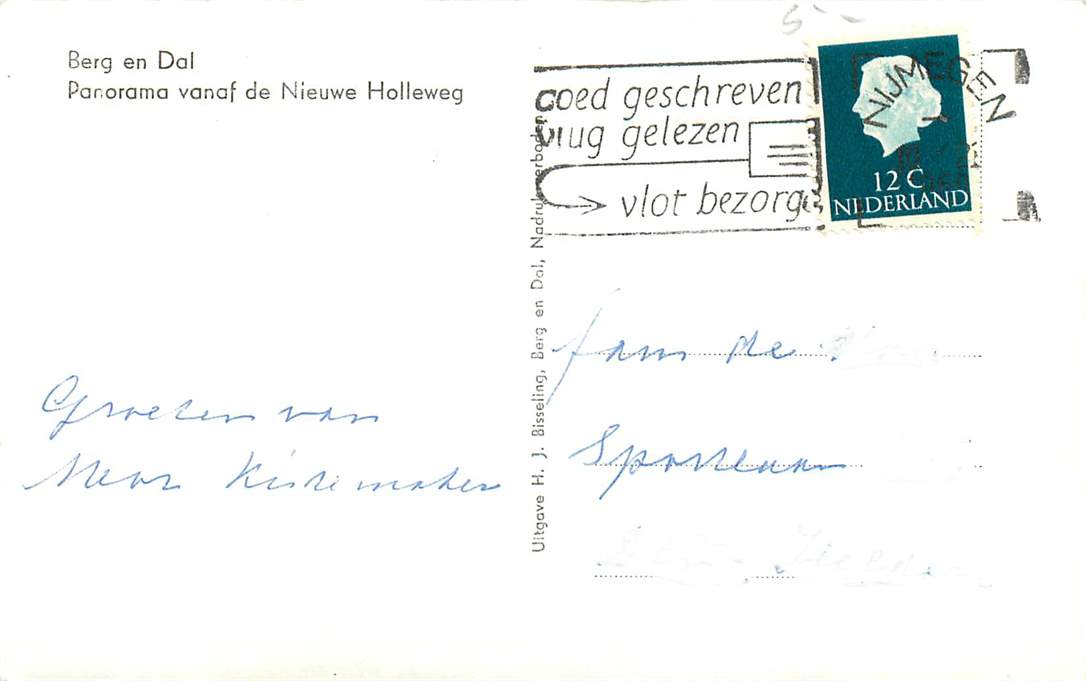 Berg en Dal
Panorama vanaf de Nieuwe Holleweg
Groeten van
Kistemaker
Uitgave H. J. Bisseling, Berg en Dal, Nadruk verboden
goed geschreven
vlug gelezen
vlot bezorgd
NIJMEGEN
12 C
NEDERLAND
fam de